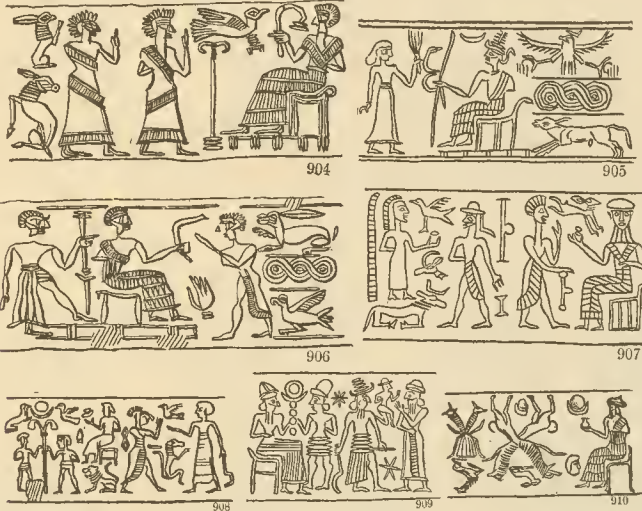 904
905
906
907
908
909
910